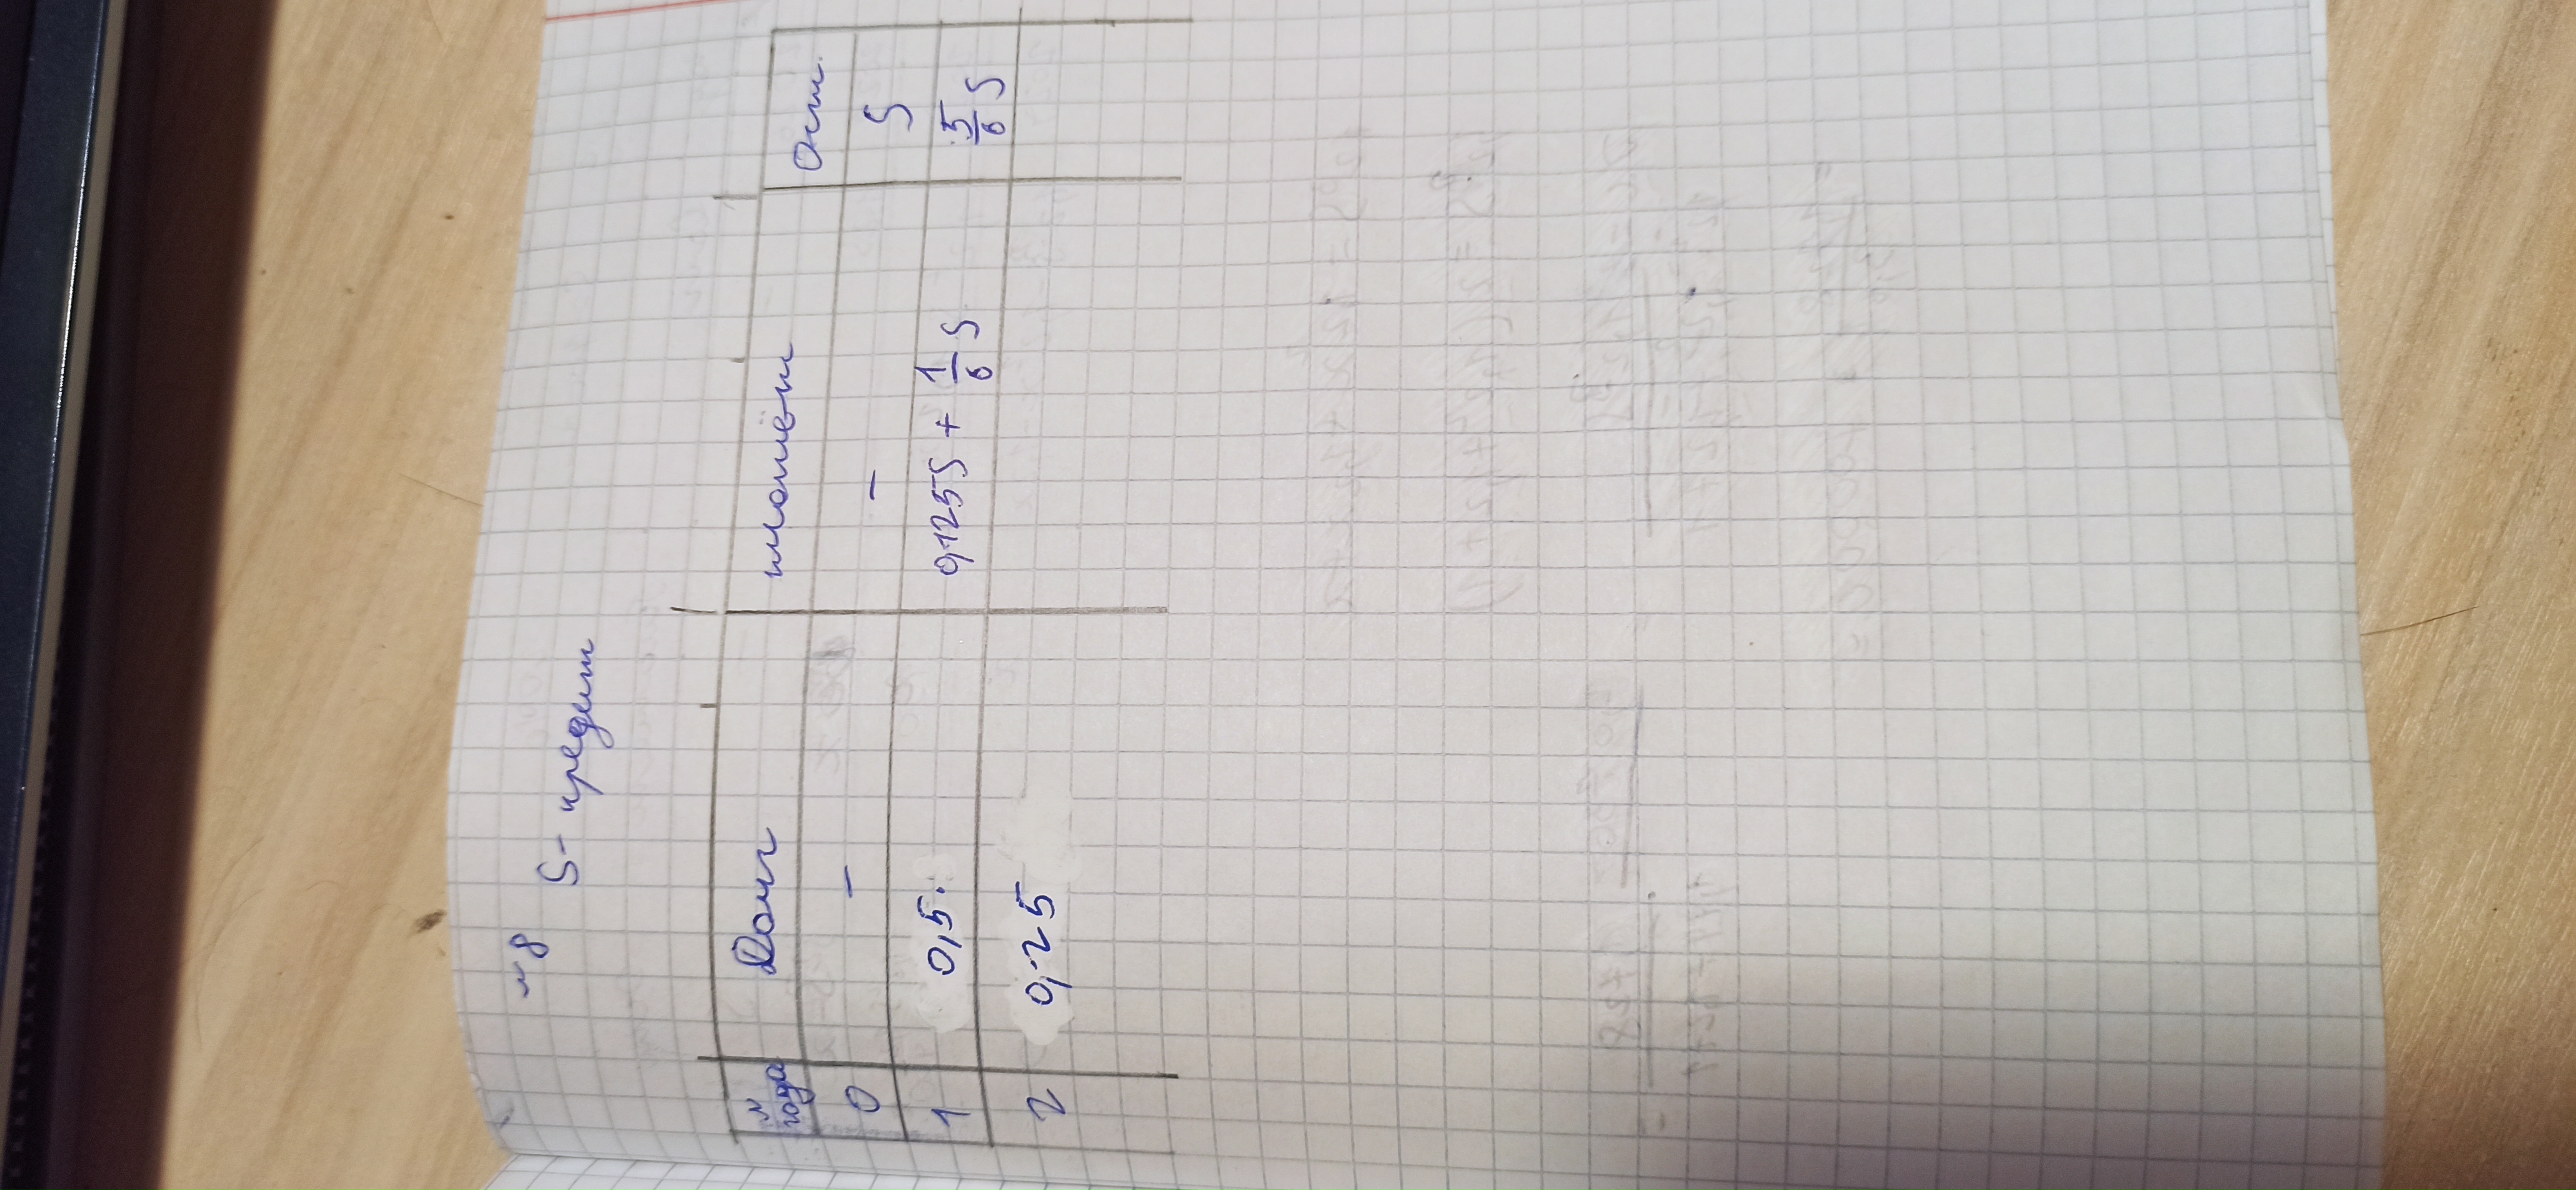 №8
S- кредит
№ года Долг платёж Ост.
0 - - S
1 0,5. 0,125S + 1/6 S 5/6 S
2 0,25